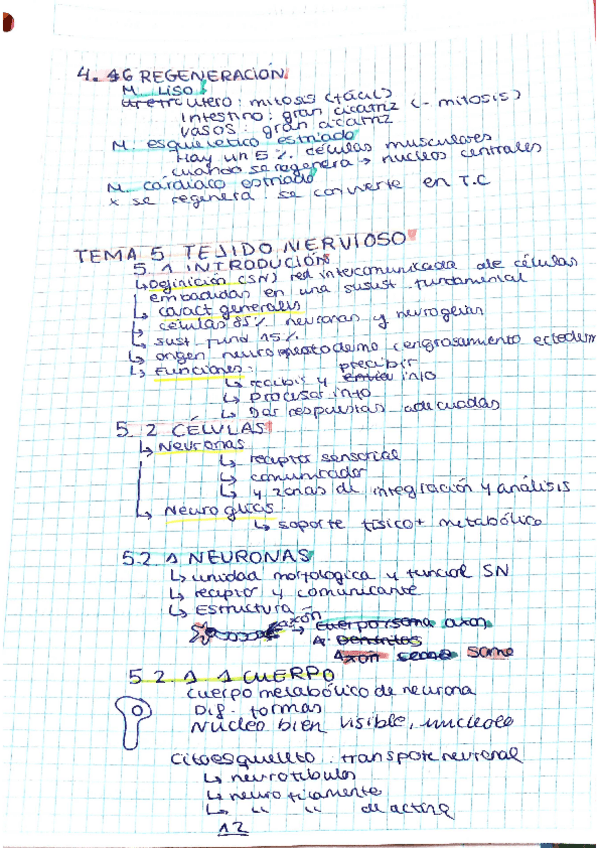 4. 46 REGENERACIÓN
M. LISO:
Uretr Utero: mitosis (fácil)
Intestino: gran cicatriz (- mitosis)
Vasos: gran cicatriz
M. esquelético estriado
Hay un 5 %. células musculares
cuando se regenera → nucleos centrales
M. cardiaco estriado
x se regenera: se convierte en T.C
TEMA 5 TEJIDO NERVIOSO
5. 1 INTRODUCIÓN
↳ Definición (SN) red intercomunicada de células
embacadas en una susust. fundamental
↳ caract generales
↳ células 85% neuronas y neuroglias
↳ sust. fund 15%
↳ origen neuro ectodermo (engrosamiento ectoderm
↳ Funciones: precibir
↳ recibir y enviar info
↳ Procesar info
↳ Dar respuestas adecuadas
5. 2 CÉLULAS
↳ Neuronas
↳ receptor sensorial
↳ comunicador
↳ y zonas de integración y análisis
↳ Neuroglias
↳ soporte físico + metabólico
5.2. 1 NEURONAS
↳ unidad morfologica y funcional SN
↳ receptor y comunicante
↳ Estructura
axón → Cuerpo soma axon
Dendritas
Axón soma
5. 2. 1 1 CUERPO
cuerpo metabólico de neurona
Dif. formas
Núcleo bien visible, nucleolo
Citoesqueleto: transporte neuronal
↳ neurotúbulos
↳ neurofilamento
↳ " " de actina
12